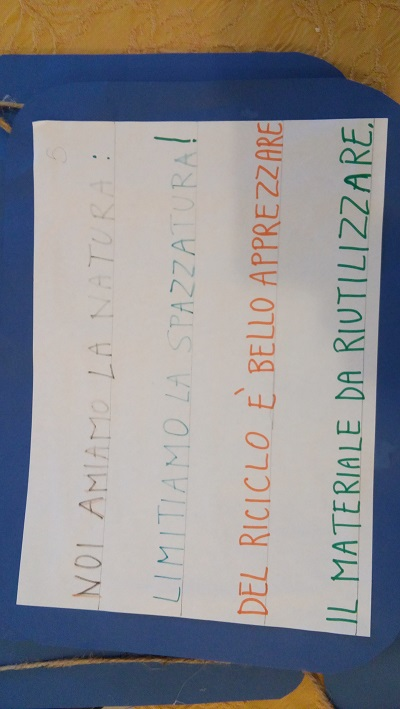 NOI AMIAMO LA NATURA:
LIMITIAMO LA SPAZZATURA!
DEL RICICLO È BELLO APPREZZARE
IL MATERIALE DA RIUTILIZZARE.